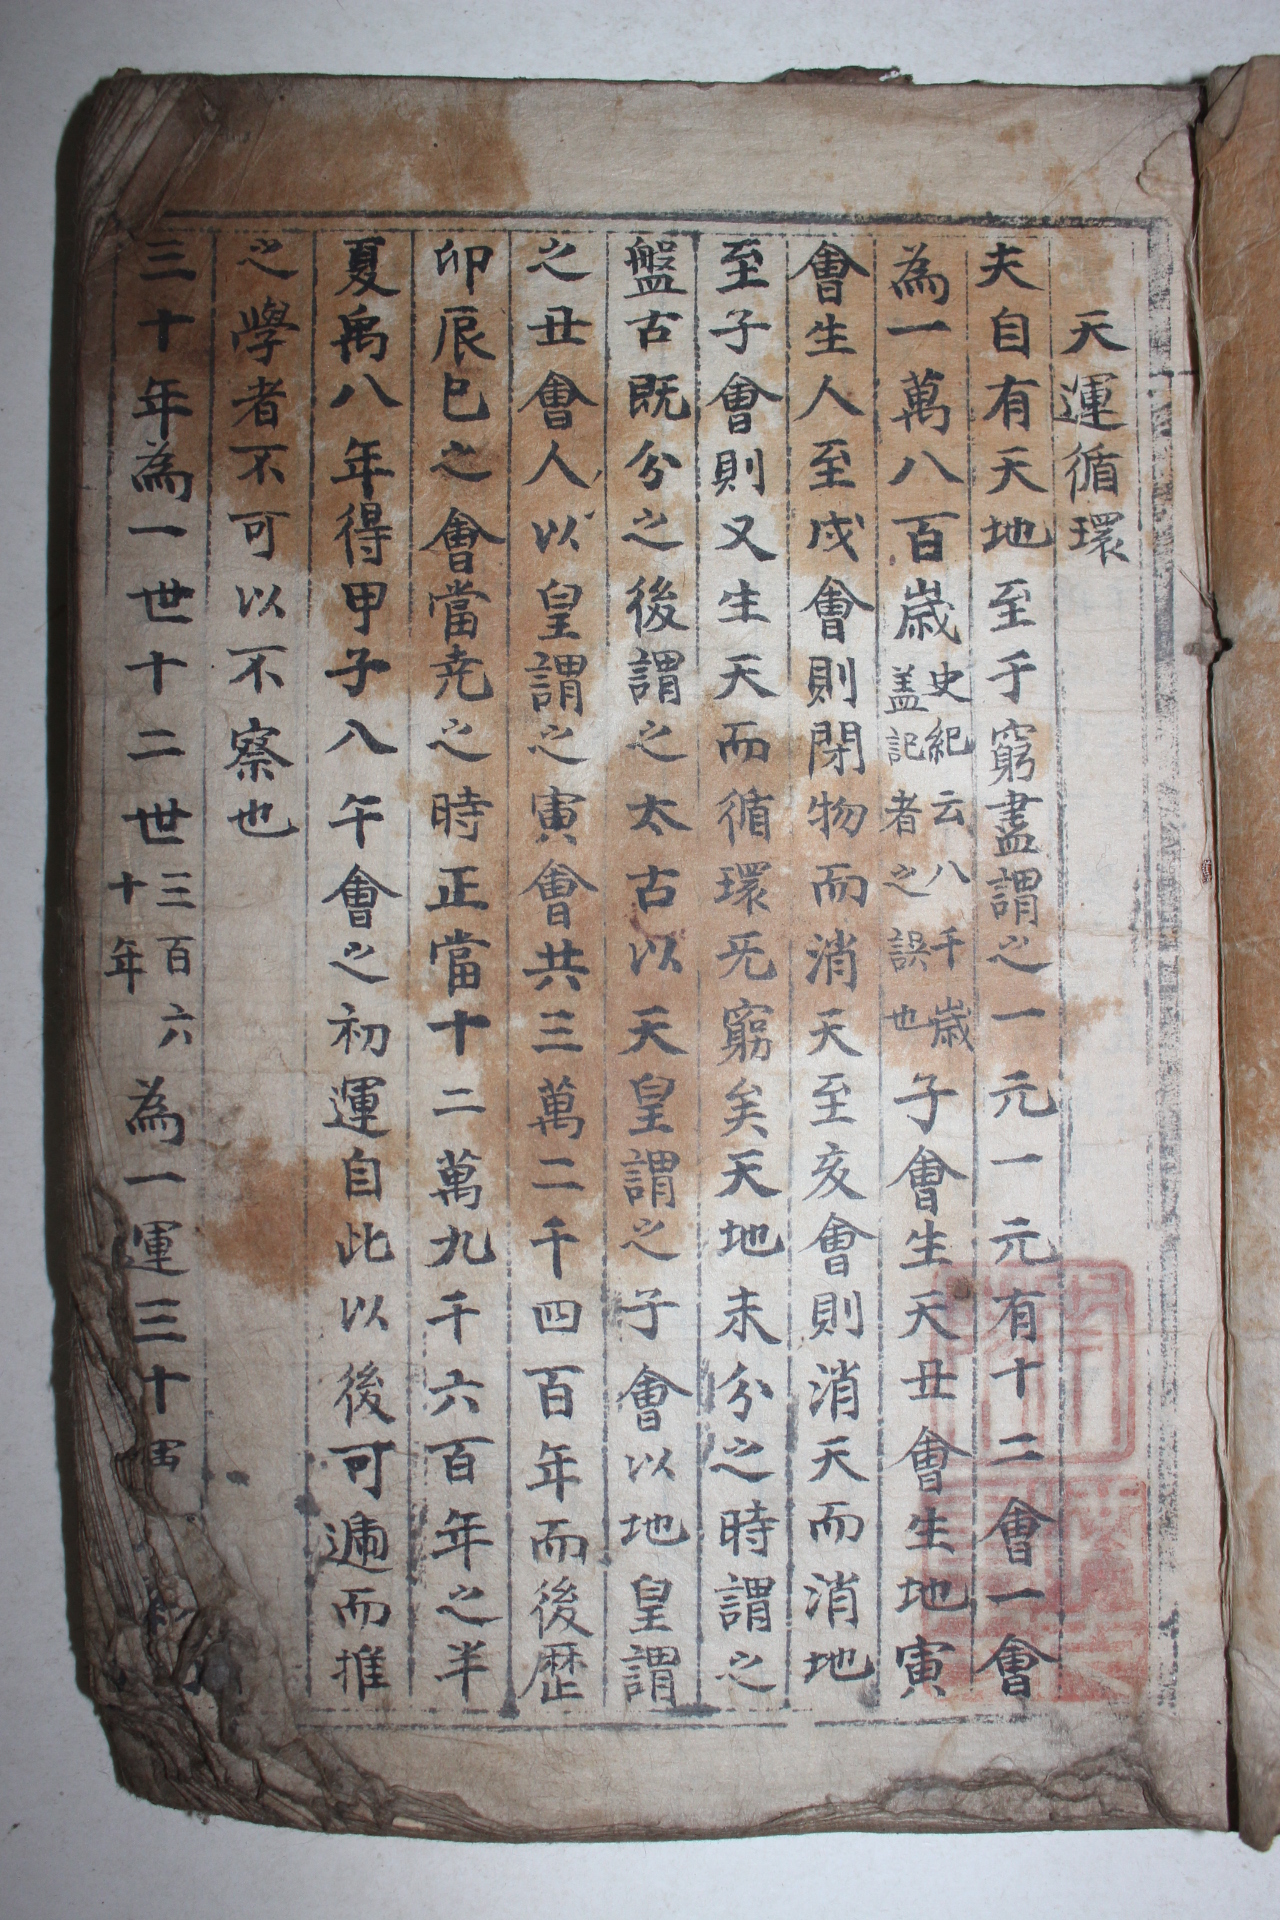 天運循環
夫自有天地至于窮盡謂之一元一元有十二會一會
為一萬八百歲史紀云八千歲盖記者之誤也子會生天丑會生地寅
會生人至戌會則閉物而消天至亥會則消天而消地
至子會則又生天而循環无窮矣天地未分之時謂之
盤古既分之後謂之太古以天皇謂之子會以地皇謂
之丑會人以皇謂之寅會共三萬二千四百年而後歷
卯辰巳之會當堯之時正當十二萬九千六百年之半
夏禹八年得甲子八午會之初運自此以後可逓而推
之學者不可以不察也
三十年為一世十二世三百六十年為一運三十